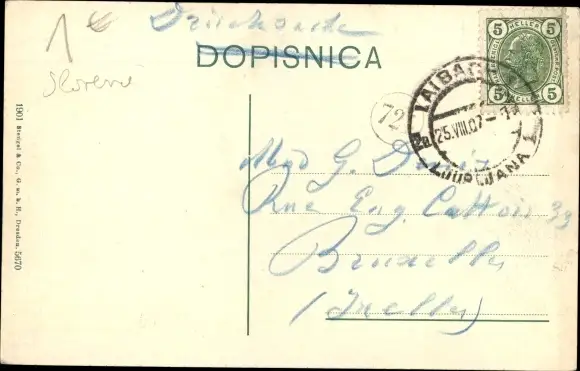 1 €
Drucksache
DOPISNICA
Slovenie
5 HELLER 5
5 HELLER 5
LAIBACH 1
2a
25.VIII.07
LJUBLJANA 1
72
G.
Rue Eug. Cattoir 33
Bruxelles
(Ixelles)
1901 Stengel & Co., G. m. b. H., Dresden. 5670